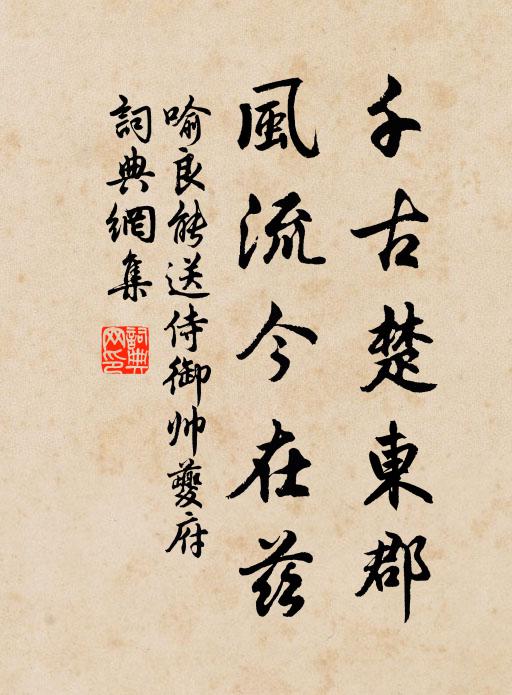 千古楚東郡
風流今在茲
喻良能送侍御帥夔府
詞典網集
詞典網印